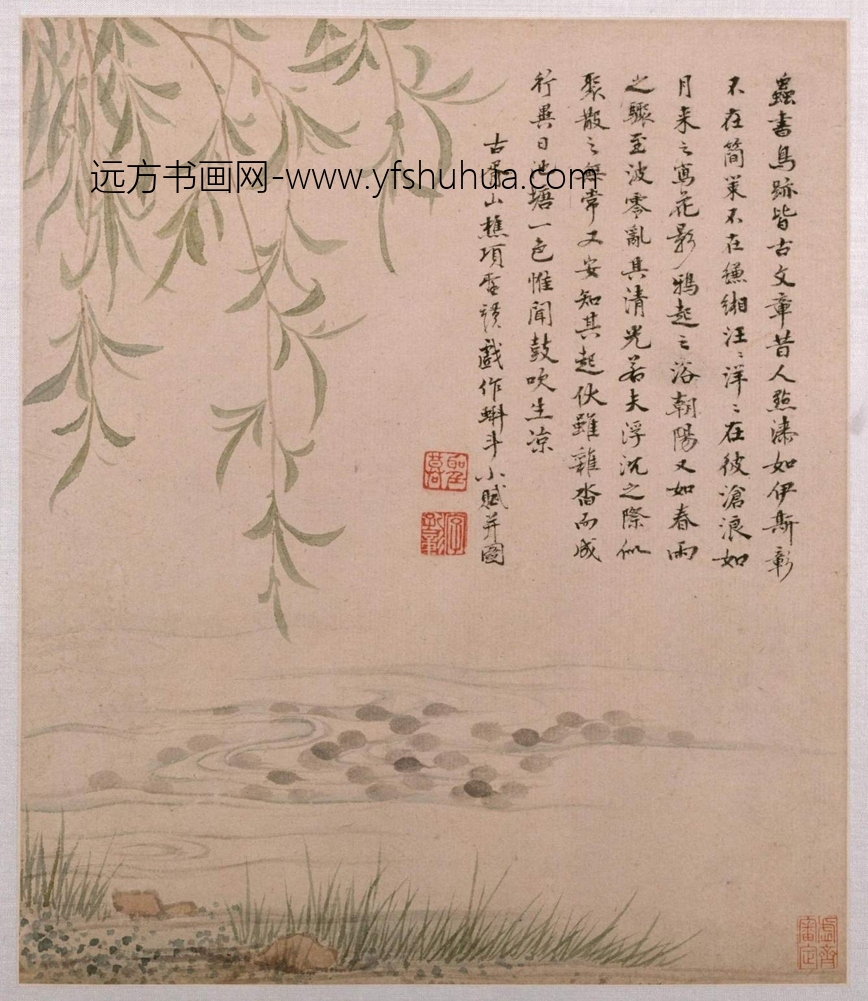 蟲書鳥跡皆古文章昔人點漆如伊斯彰
不在簡策不在縑緗汪〻洋〻在彼滄浪如
月来之寫花影鴉起之浴朝陽又如春雨
之驟至波零亂其清光若夫浮沉之際似
聚散之無常又安知其起伏雖雜沓而成
行異日池塘一色惟聞鼓吹生凉
古 山樵項聖謨戲作蝌斗小賦并圖
远方书画网-www.yfshuhua.com